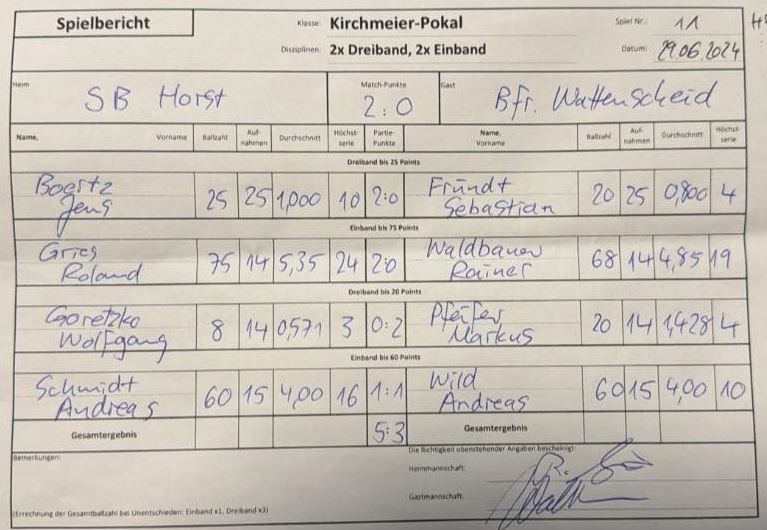 Spielbericht Klasse: Kirchmeier-Pokal Spiel Nr.: 11
Disziplinen: 2x Dreiband, 2x Einband Datum: 29.06.2024
Heim Match-Punkte Gast
SB Horst 2:0 Bfr. Wattenscheid
Name, Vorname Ballzahl Auf-nahmen Durchschnitt Höchst-serie Partie-Punkte Name, Vorname Ballzahl Auf-nahmen Durchschnitt Höchst-serie
Dreiband bis 25 Points
Boertz 25 25 1,000 10 2:0 Fründt 20 25 0,800 4
Jens Sebastian
Einband bis 75 Points
Gries 75 14 5,35 24 2:0 Waldbauer 68 14 4,85 19
Roland Rainer
Dreiband bis 20 Points
Goretzko 8 14 0,571 3 0:2 Pfeifer 20 14 1,428 4
Wolfgang Markus
Einband bis 60 Points
Schmidt 60 15 4,00 16 1:1 Wild 60 15 4,00 10
Andreas Andreas
Gesamtergebnis 5:3 Gesamtergebnis
Bemerkungen: Die Richtigkeit obenstehender Angaben bescheinigt:
Heimmannschaft:
Gastmannschaft:
(Errechnung der Gesamtballzahl bei Unentschieden: Einband x1, Dreiband x3)